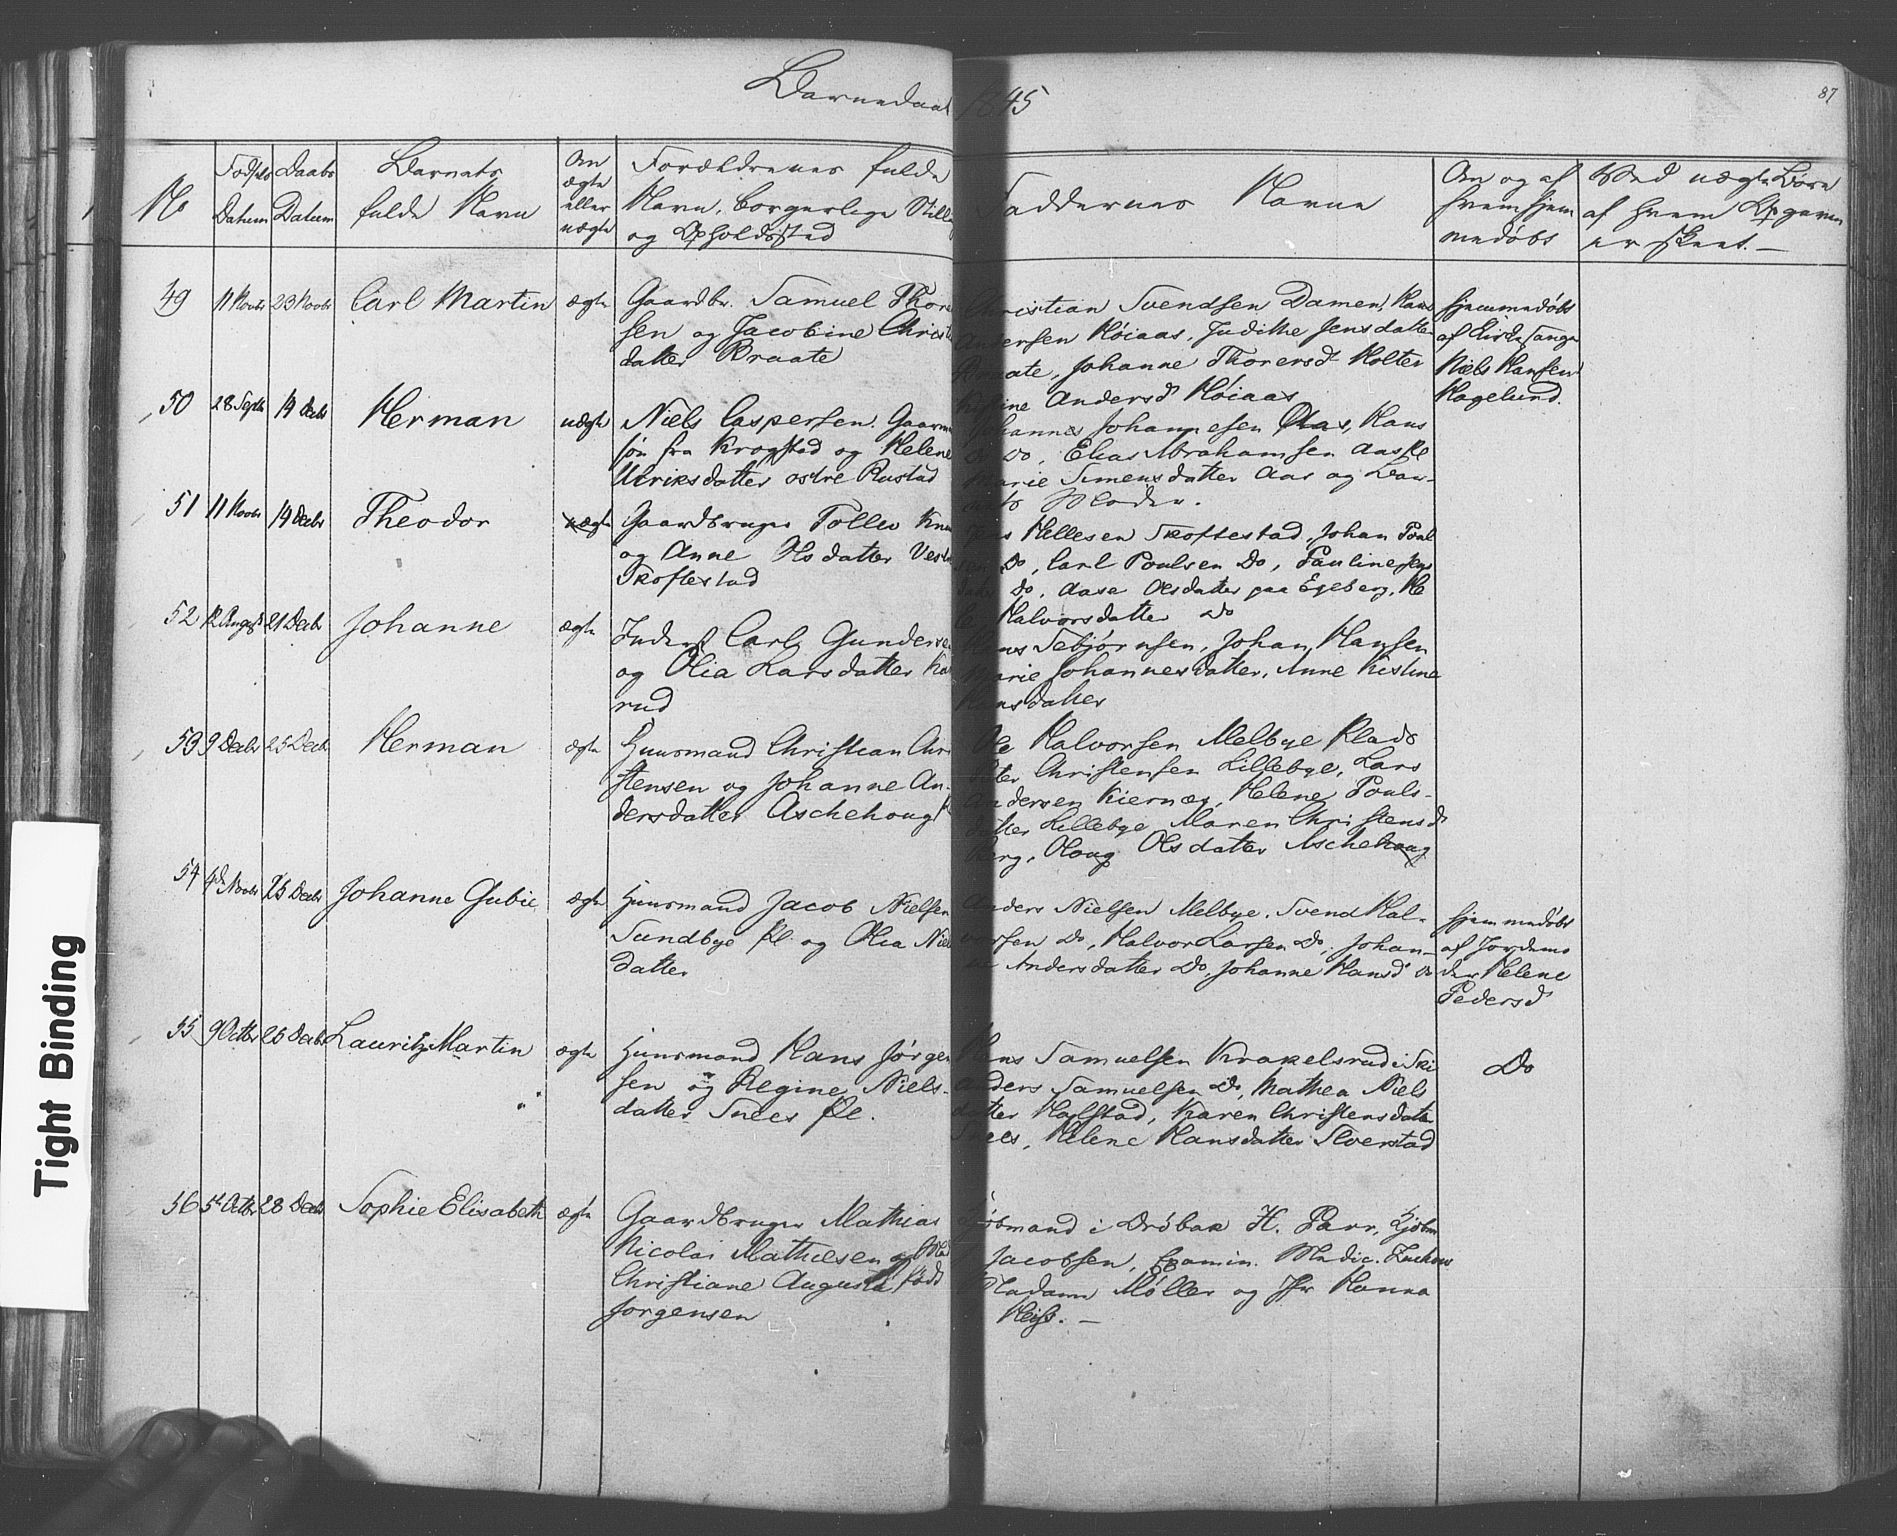 Barnedaab 1845
87
No
Fødsels Datum
Daabs Datum
Barnets fulde Navn
Om ægte eller uægte
Forældrenes fulde
Navn, borgerlige Stilling
og Opholdssted
Faddernes Navne
Om og af
hvem hjem
medøbt
Ved uægte Børn
af hvem Opgaven
er skeet. —
49 11 Novbr 23 Novbr Carl Martin ægte
Gaardbr. Samuel Thor
sen og Jacobine Christ
datter Braate
Christian Svendsen Damen, Hans
Andersen Høiaas, Judithe Jensdatter
Braate, Johanne Thorersd Holter
Andersd Høiaas
hjemmedøbt
af Kirkesanger
Niels Hansen
Hagelund.
50 28 Septbr 14 Decbr Herman uægte
Niels Caspersen. Gaarm
søn fra Krogstad og Helene
Ulriksdatter østre Rustad
Johannes Johannesen Aas, Hans
Do Do, Elias Abrahamsen Aas
Marie Simensdatter Aas og Bar-
nets Moder.
51 11 Novbr 14 Decbr Theodor uægte
Gaardbruger Tollev Knu
og Anne Olsdatter Vestr
Skoftestad
Jens Hellesen Skoftestad, Johan Poul
sen Do, Carl Poulsen Do, Pauline Jens
datter Do, Aase Olsdatter paa Egeberg, He
le Halvorsdatter Do
52 12 August 21 Decbr Johanne ægte
Inderst Carl Gunderse
og Olia Larsdatter Ka
rud
Hans Tebjørnsen, Johan Hansen
Marie Johannesdatter, Anne Kistine
Hansdatter
53 9 Decbr 25 Decbr Herman ægte
Huusmand Christian Chri
stensen og Johanne An-
dersdatter Aschehoug
Ole Halvorsen Melbye Plads
Peter Christensen Lillebye, Lars
Andersen Kiernæs, Helene Pouls-
datter Lillebye Maren Christensd
Berg, Houg Olsdatter Aschehoug
54 4de Novbr 25 Decbr Johanne Gubie ægte
Huusmand Jacob Nielsen
Sundbye Pl. og Olia Niels
datter
Anders Nielsen Melbye. Svend Hal-
vorsen Do, Halvor Larsen Do, Johan-
ne Andersdatter Do, Johanne Hansd Do
hjemmedøbt
af Jordemo
der Helene
Pedersd
55 9 Octbr 26 Decbr Lauritz Martin ægte
Huusmand Hans Jørgen
sen og Regine Niels-
datter Snees Pl.
Hans Samuelsen Krakelsrud i Ski
Anders Samuelsen Do, Mathea Niels
datter Holstad, Karen Christensdatter
Snees, Helene Hansdatter Sloerstad
Do
56 5te Octbr 28 Decbr Sophie Elisabeth ægte
Gaardbruger Mathias
Nicolai Mathiesen og Mad
Christiane Augusta født
Jorgensen
Kjøbmand i Drøbak H. Parr, Kjøbm
Jacobsen, Examin. Medic.
Madam Møller og Jfr Hanna
Heiss. —
Tight Binding